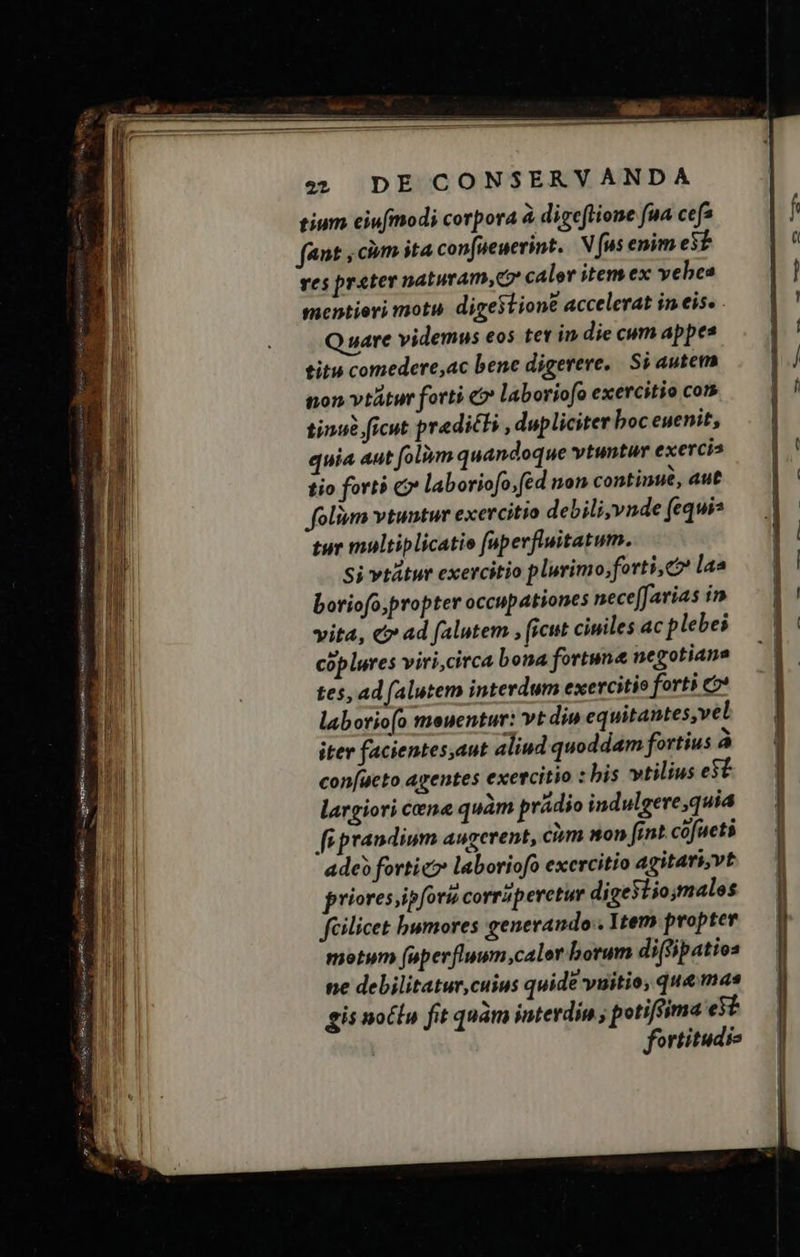 22 DE CONSERVANDA
tium eiuſmodi corpora à digeſtione ſua ceſ-
ſant, cùm ita conſueuerint. Vſus enim eſt
res præter naturam, & calor item ex vehe-
mentiori motu digeſtionẽ accelerat in eis.
Quare videmus eos ter in die cum appe-
titu comedere, ac bene digerere. Si autem
non vtãtur forti & laborioſo exercitio con
tinuè, ſicut prædicti, dupliciter hoc euenit,
quia aut ſolùm quandoque vtuntur exerci-
tio forti & laborioſo, ſed non continuè, aut
ſolùm vtuntur exercitio debili, vnde ſequi-
tur multiplicatio ſuperfluitatum.
Si vtãtur exercitio plurimo, forti, & la-
borioſo, propter occupationes neceſſarias in
vita, & ad ſalutem, ſicut ciuiles ac plebei
cõplures viri, circa bona fortunæ negotian-
tes, ad ſalutem interdum exercitio forti &
laborioſo mouentur: vt diu equitantes, vel
iter facientes, aut aliud quoddam fortius à
conſueto agentes exercitio: his vtilius eſt
largiori cœnæ quàm prãdio indulgere, quia
ſi prandium augerent, cùm non ſint cõſueti
adeò forti & laborioſo exercitio agitari, vt
priores, ipſorũ corrũperetur digeſtio, malos
ſcilicet humores generando. Item propter
motum ſuperfluum, calor horum diſsipatio-
ne debilitatur, cuius quidẽ vnitio, quæ ma-
gis noctu fit quàm interdiu, potiſsima eſt
fortitudi-